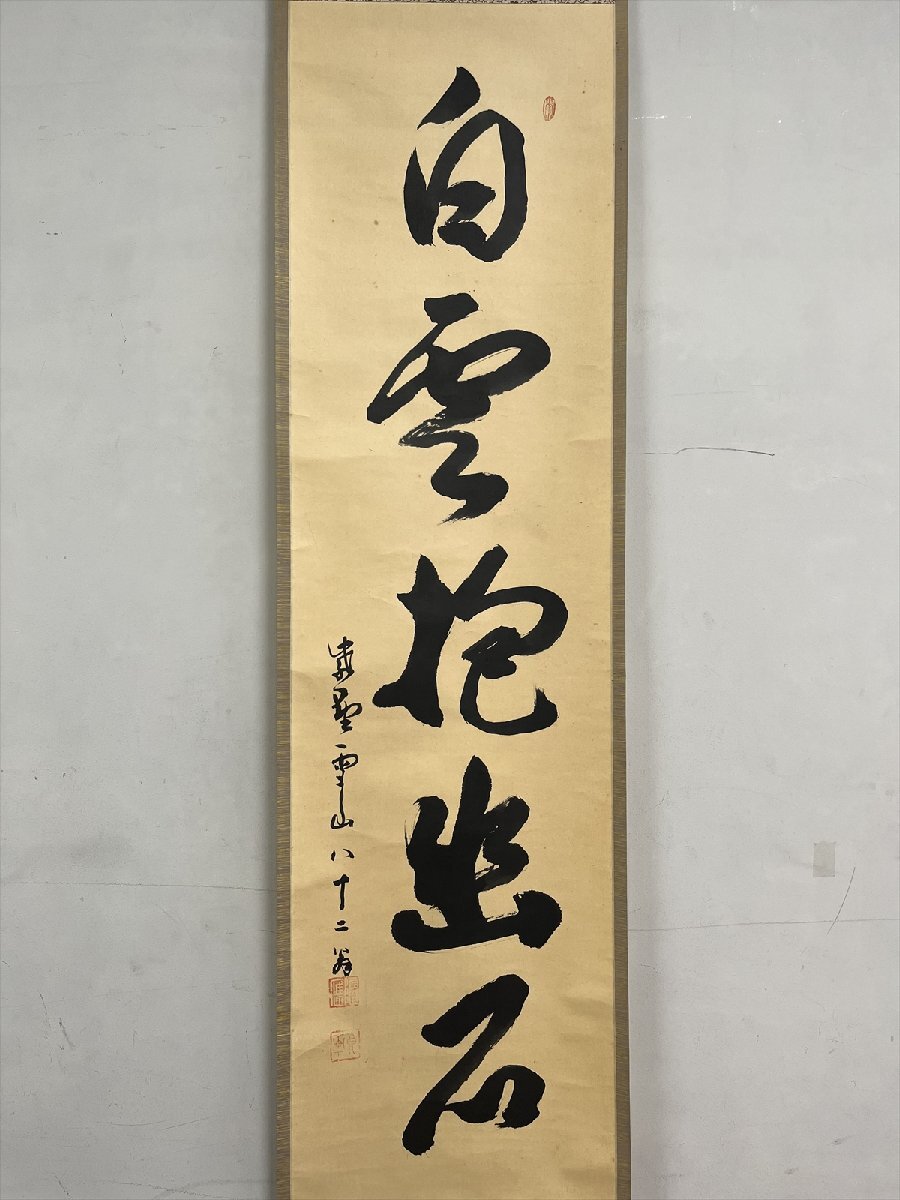 白雲抱幽石
紫野雪山八十二翁